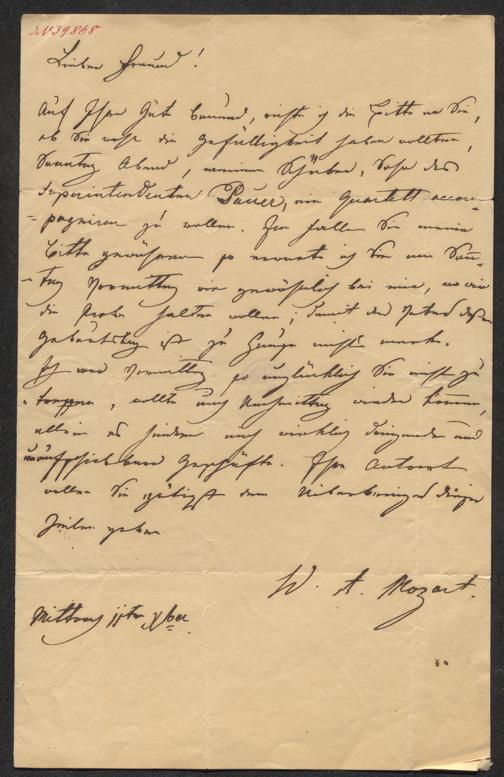 Lieber Freund!
Auf Ihre Güte bauend, richte ich die Bitte an Sie,
ob Sie wohl die Gefälligkeit haben wollten,
Sonntag Abend, meinem Schüler, Sohn des
Superintendenten Pauer, ein Quartett accom-
pagniren zu wollen. Im Falle Sie meine
Bitte gewähren so erwarte ich Sie am Sonn-
tag Vormittag wie gewöhnlich bei mir, wo wir
die Probe halten wollen; damit der Vater dessen
Geburtstag ist zu Hause nichts merke.
Ich war Vormittag so unglücklich Sie nicht zu
treffen, wollte auch Nachmittag wieder kommen,
allein es hindern mich wirklich dringende und
unaufschiebbare Geschäfte. Ihre Antwort
wollen Sie gütigst dem Ueberbringer dieser
Zeilen geben.
W. A. Mozart.
Mittwoch 11ten Xber